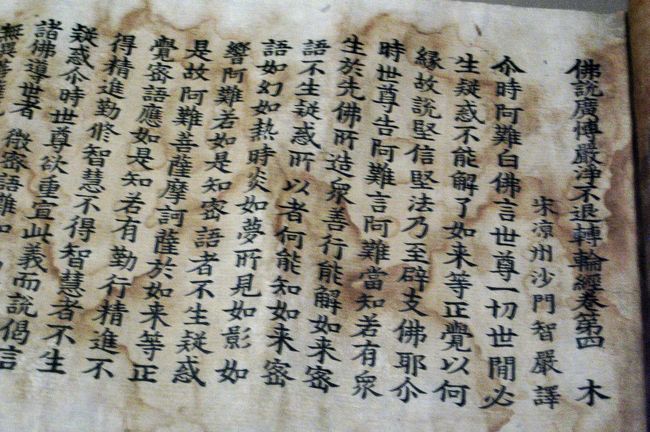 佛說廣博嚴淨不退轉輪經卷第四　木
宋涼州沙門智嚴譯
尒時阿難白佛言世尊一切世間必
生疑惑不能解了如来等正覺以何
緣故說堅信堅法乃至辟支佛耶尒
時世尊告阿難言阿難當知若有眾
生於先佛所造眾善行能解如来密
語不生疑惑所以者何能知如来密
語如幻如熱時炎如夢所見如影如
響阿難若如是知密語者不生疑惑
是故阿難菩薩摩訶薩於如来等正
覺密語應如是知若有勤行精進不
得精進勤修智慧不得智慧者不生
疑惑尒時世尊欲重宣此義而說偈言
諸佛導世者　微密語難知